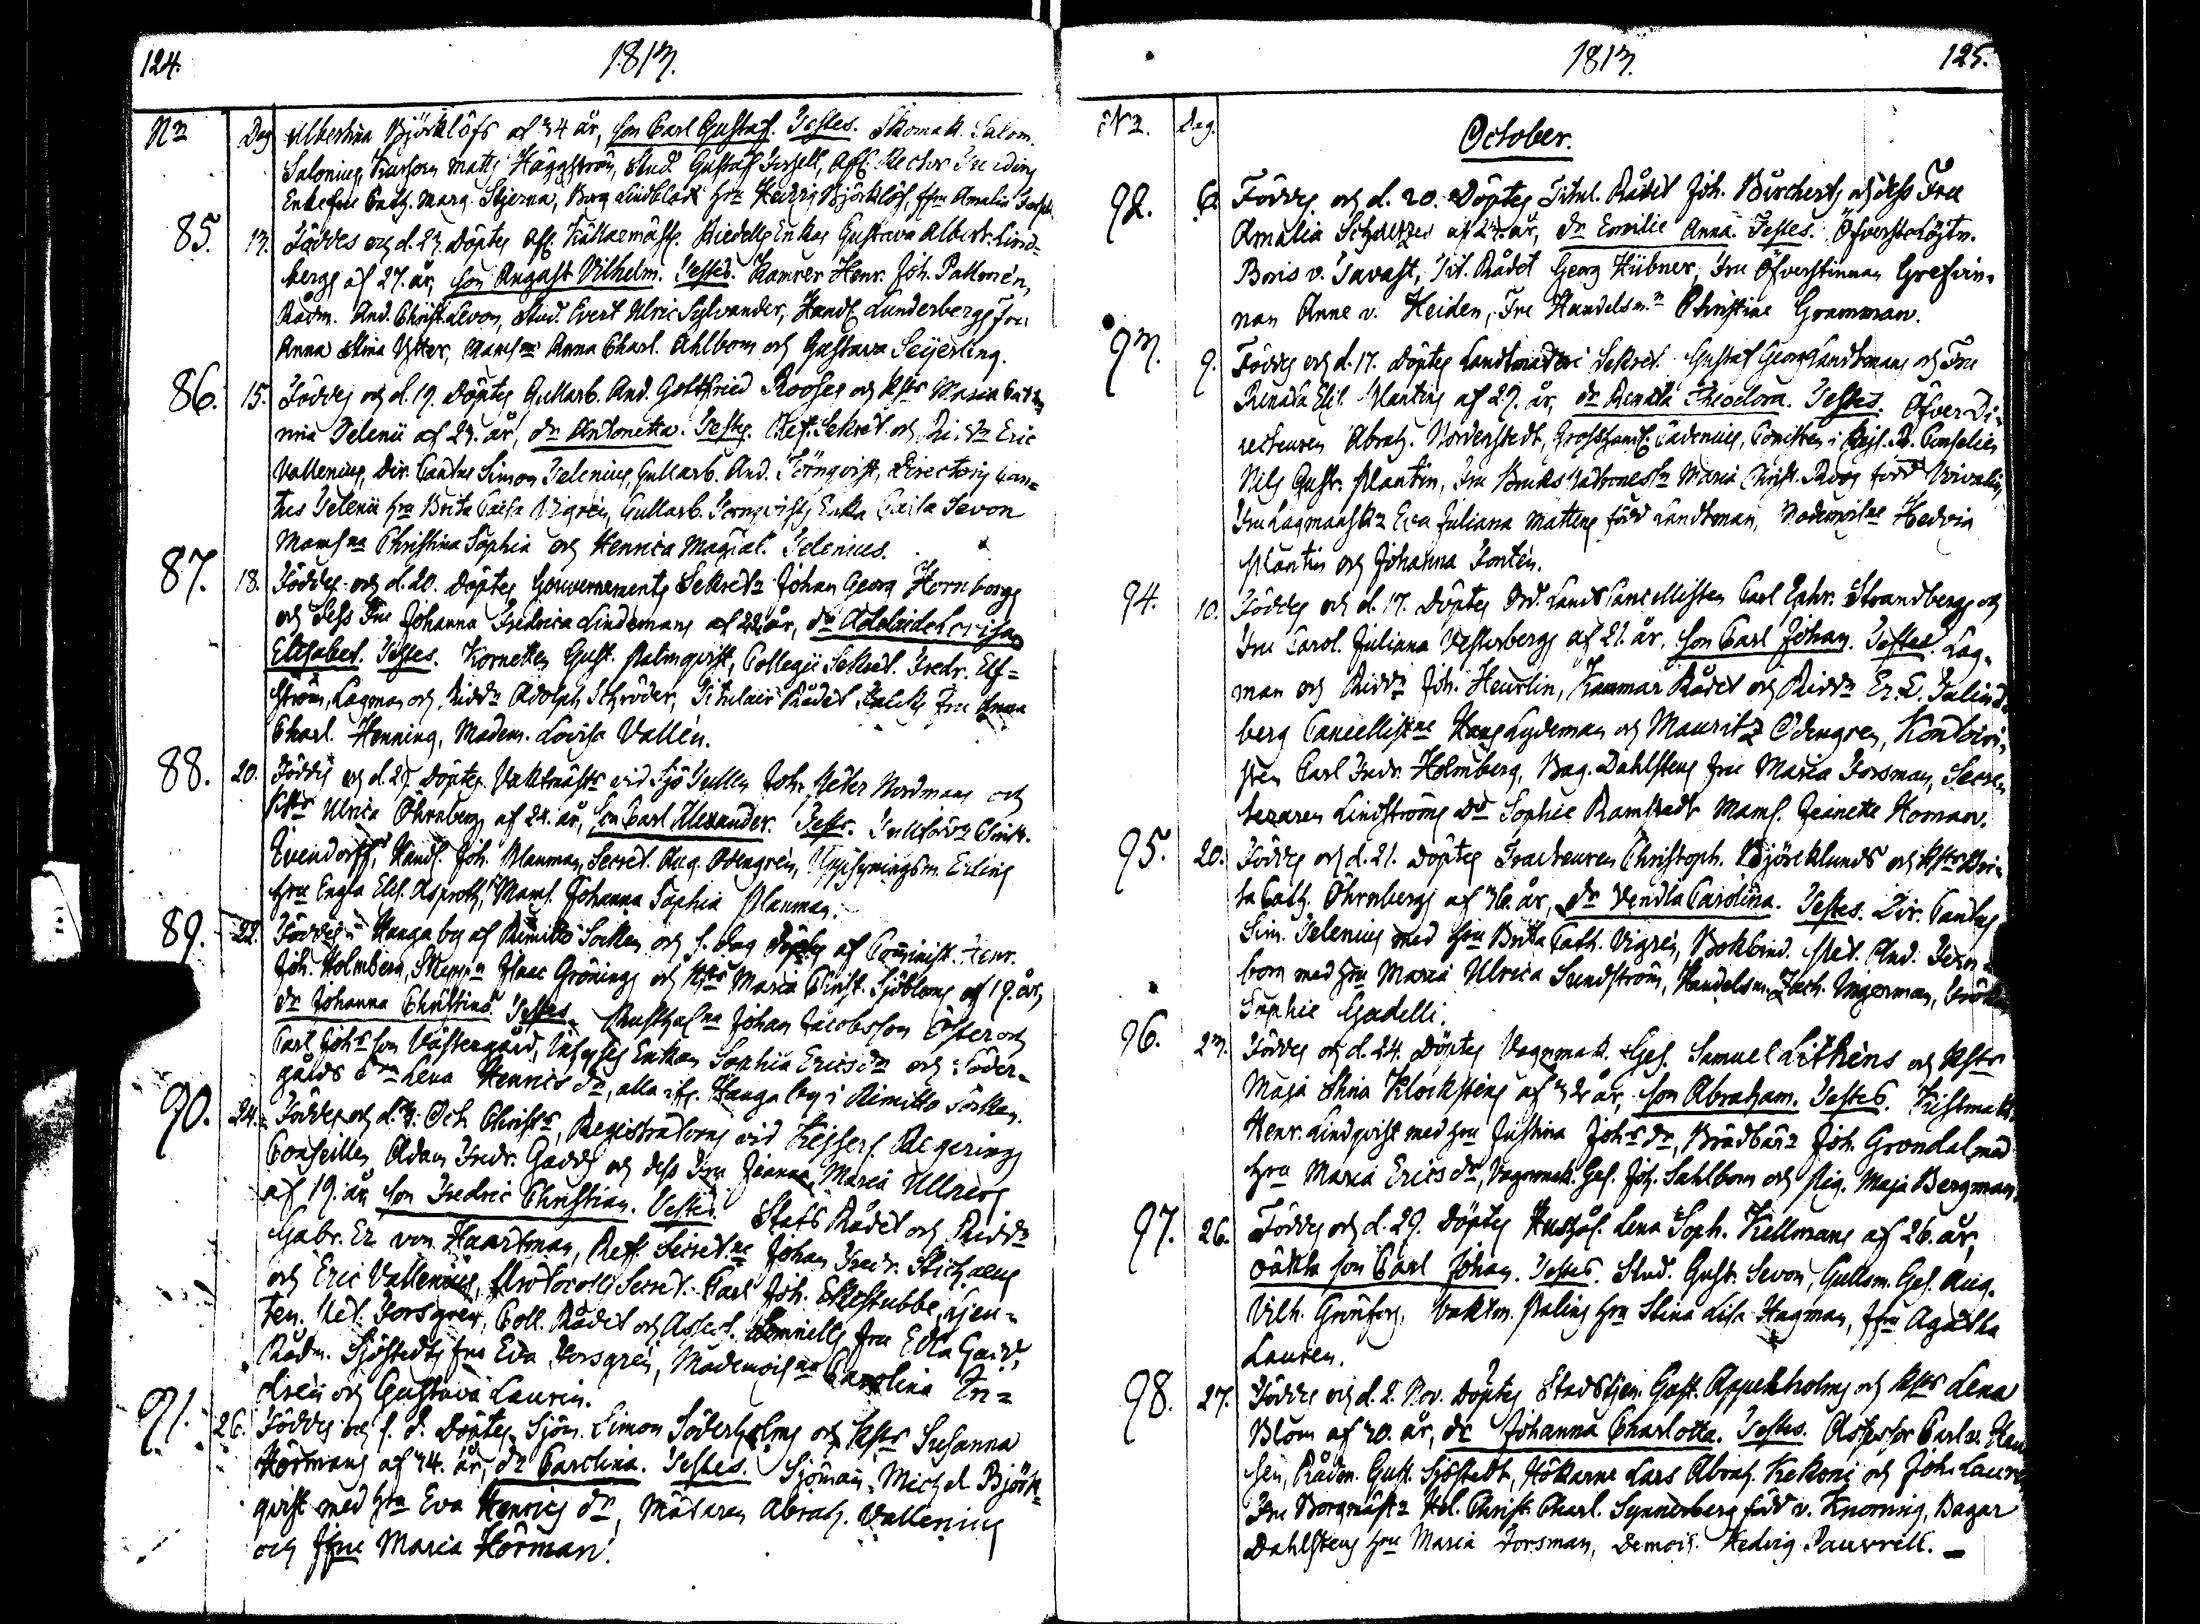 124.
1813.
Nr
Dag
Albertina Björklöfs af 34 år, son Carl Gustaf. Testes. Skomak. Salom.
Salonius, Matts Häggström, Stud. Gustaf Rector
Enkefru Cath. Marg. Stjerna, Lindblads hru Hedvig Björklöf, jfru Amalia
85. 13. Föddes och d. 23. Döptes Enkas Gustava Albert. Lind-
bergs af 27. år, son August Vilhelm. Testes. Kamrer Henr. Joh. Pallonén,
Rådm. And. Christ. Levon, Stud. Evert Ulric Sylvander, Handl. Lunderbergs Fru
Anna Stina Ytter, Mamslne Anna Charl. Ahlbom och Gustava Seijerling.
86. 15. Föddes och d. 19. Döptes Gullarb. And. Gottfried Rooses och Hstr Maria Catha-
rina Telenii af 23. år, dr Antonetta. Testes. Ref. Sekret. och Eric
Vallenius, Dir. Cantus Simon Telenius, Gullarb. And. Törnqvist, Directoris Can-
tus Telenii hru Brita Caisa Vigrén, Gullarb. Törnqvists Enka Caisa Sevon
Mamslna Christina Sophia och Henrica Magdal. Telenius.
87. 18. Föddes och d. 20. Döptes Gouvernements Sekretr Johan Georg Hornborgs
och dess Fru Johanna Fredrica Lindemans af 22 år, dr Adelaide Lovisa
Elisabet. Testes. Kornetten Gust. Palmqvist, Collegii Sekret. Fredr. Elf-
ström, Lagman och Riddr Adolph Schröder, Titulair Rådet Falcks Fru Anna
Charl. Henning, Madem. Lovisa Vallén.
88. 20. Föddes och d. 27. Döptes Vaktmästr vid Sjö Tullen Joh. Peter Nordmans och
Hstr Ulrica Öhrnbergs af 24. år, son Carl Alexander. Testes. Tullförv Christ.
Evendorff, Handl. Joh. Planman, Secret. Aug. Odengren, Uppsyningsm. Erling
hru Engla Elis. Asproth, Mams. Johanna Sophia Planman.
89. 22. Föddes i Hanga by af Rimitto Socken och s. dag döptes af Comminist. Henr.
Joh. Holmberg, Isaac Grönings och Hstr Maria Christ. Sjöbloms af 19. år,
dr Johanna Christina. Testes. Rusthålne Johan Jacobsson Öster och
Carl Johsson Västergård, Enkan Sophia Ericsdr och Söder-
gårds Lena Henricsdr, alla ifr. Hanga by i Rimitto Socken.
90. 24. Föddes och d. 3. Oct. Christs, Registratorns vid Kejserl. Regerings
Conseillen Adam Fredr. Gadds och dess Fru Jeanna Maria Ullrics
af 19. år son Fredric Christian. Testes. Stats Rådet och Riddr
Gabr. Er. von Haartman, Ref. Secretne Johan Fredr. Stichæus
och Eric Vallenius, Protocolls Secret. Carl Joh. Ekestubbe,
Pet. Forsgren, Coll. Rådet och Assess. Fru Edla Gadd,
Rådm. Sjöstedts fru Eva Forsgrén, Mademoislna Carolina In-
drén och Gustava Laurin.
91. 26. Föddes och s. d. Döptes Sjöm. Simon Söderholms och Hstr Susanna
Hörmans af 34. år, dr Carolina. Testes. Sjöman Michel Björk-
qvist med hru Eva Henrics dr, Mätaren Abrah. Vallenius
och Jfru Maria Hörman.
1813.
125.
Nr.
Dag.
October.
92. 6. Föddes och d. 20. Döptes Titul. Rådet Joh. Burcherts och dess Fru
Amalia af 23. år, dr Emilie Anna. Testes. Öfverste Löjtn.
Boris v. Tavast, Tit. Rådet Georg Hübner, Fru Öfverstinnan Grefvin-
nan Anne v. Heiden, Fru Handelsm. Christine Gramman.
93. 9. Föddes och d. 17. Döptes Landtmäteri Sekret. Gustaf Georg Landtmans och Fru
Renata Elis. Plantins af 29. år, dr Renata Theodora. Testes. Öfver Di-
recteuren Abrah. Nordenstedt, Grosshandl. Cadenius, Copisten i Kejs. R. Conseilen
Nils Gustr. Plantin, Fru Bruks Patronesn Maria Christ. Roos född
Fru Lagmanskn Eva Juliana Mattens född Landtman, Mademoislne Hedvig
Plantin och Johanna Fontén.
94. 10. Föddes och d. 17. Döptes Ord. Lands Cancellisten Carl Ephr. Strandbergs och
Fru Carol. Juliana Vesterbergs af 21. år, son Carl Johan. Testes. Lag-
man och Riddr Joh. Heurlin, Kammar Rådet och Riddr Er. E. Julind-
berg Cancellistne Hans Lydeman och Mauritz Odengren, Kontori-
sten Carl Fredr. Holmberg, Bag. Dahlstens fru Maria Forsman, Secre-
teraren Lindströms Dr Sophie Ramstedt Mams. Jeanette Homan.
95. 20. Föddes och d. 21. Döptes Tracteuren Christoph. Björcklunds och Hstr Bri-
ta Cath. Öhrnbergs af 36. år, dr Vendla Carolina. Testes. Dir. Cantus
Sim. Telenius med hru Britta Cath. Vigrén, Bokbind. Mest. And.
bom med hru Maria Ulrica Sundström, Handelsm. Zach. Ungerman, Frök.
Sophie Gadelli.
96. 23. Föddes och d. 24. Döptes Vagnmak. Ges. Samuel Lithéns och Hstr
Maja Stina Klockstens af 32 år, son Abraham. Testes. Kistmak.
Henr. Lindqvist med hru Justina Johsdr, Brädbär Joh. Grondal med
hru Maria Ericsdr, Vagnmak. Ges. Joh. Sahlbom och Pig. Maja Bergman.
97. 26. Föddes och d. 29. Döptes Hushåls. Lena Soph. Kellmans af 26. år,
oäkta son Carl Johan. Testes. Stud. Gustr. Sevon, Gullsm. Ges. Aug.
Vilh. Grönfors, Vaktm. Palins hru Stina Lisa Hagman, Jfru Agatha
Lauren.
98. 27. Föddes och d. 2. Nov. Döptes Stadstjen. Gust. Appelholms och Hstr Lena
Blom af 30. år, dr Johanna Charlotta. Testes. Assessor Carl v. Han-
sen, Rådm. Gust. Sjöstedt, Hökarne Lars Abrah. Kekoni och Joh. Lauren
Fru Borgmästr Hel. Christ. Charl. Synnerberg född v. Knorring, Bagar
Dahlstens hru Maria Forsman, Demois. Hedvig Paurrell.